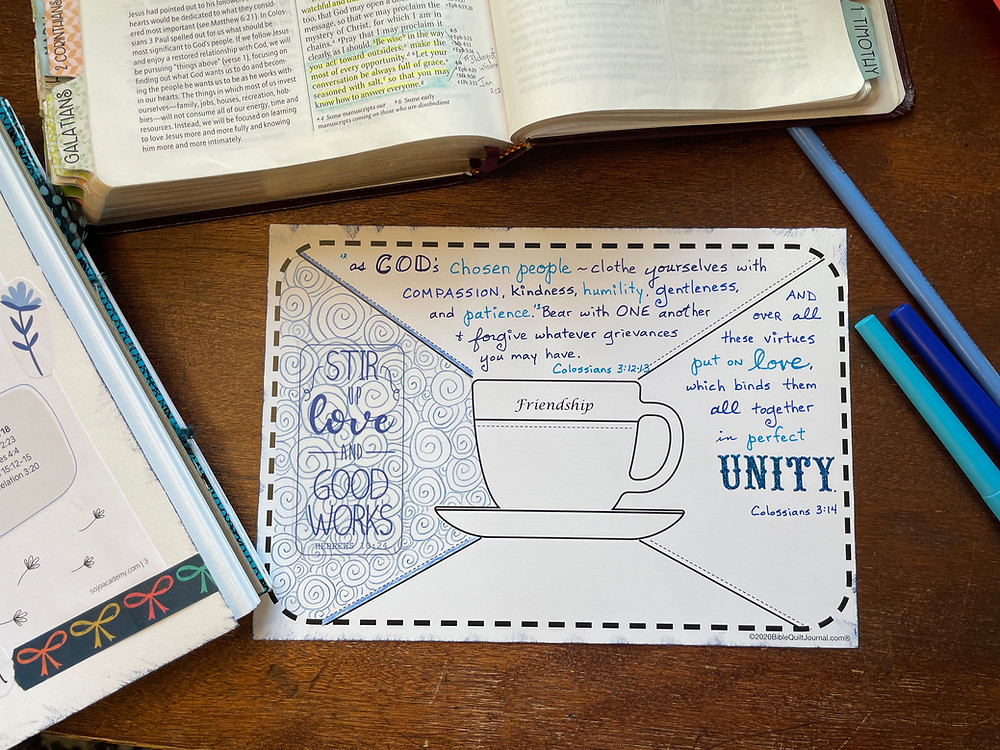 Jesus had pointed out to his followers
hearts would be dedicated to what they consid-
ered most important (see Matthew 6:21). In Colos-
sians 3 Paul spelled out for us what should be
most significant to God's people. If we follow Jesus
and enjoy a restored relationship with God, we will
be pursuing "things above" (verse 1), focusing on
finding out what God wants us to do and becom-
ing the people he wants us to be as he works with-
in our hearts. The things in which most of us invest
ourselves—family, jobs, houses, recreation, hob-
bies—will not consume all of our energy, time and
resources. Instead, we will be focused on learning
to love Jesus more and more fully and knowing
him more and more intimately.
watchful and
too, that God may open a
message, so that we may proclaim the
mystery of Christ, for which I am in
chains. 4 Pray that I may proclaim it
clearly, as I should. 5 Be wise in the way
you act toward outsiders; make the
most of every opportunity. 6 Let your
conversation be always full of grace,
seasoned with salt, so that you may
know how to answer everyone.
a 4 Some manuscripts our b 6 Some early
manuscripts coming on those who are disobedient
2 CORINTHIANS
GALATIANS
1 TIMOTHY
12 as GOD's Chosen people ~ clothe yourselves with
COMPASSION, kindness, humility, gentleness,
and patience. 13 Bear with ONE another
+ forgive whatever grievances
you may have.
Colossians 3:12-13
AND
over all
these virtues
put on love,
which binds them
all together
in perfect
UNITY.
Colossians 3:14
STIR
UP
love
AND
GOOD
WORKS
HEBREWS 10:24
Friendship
©2020BibleQuiltJournal.com®
18
2:23
4:4
15:12-15
elation 3:20
sojoacademy.com | 3